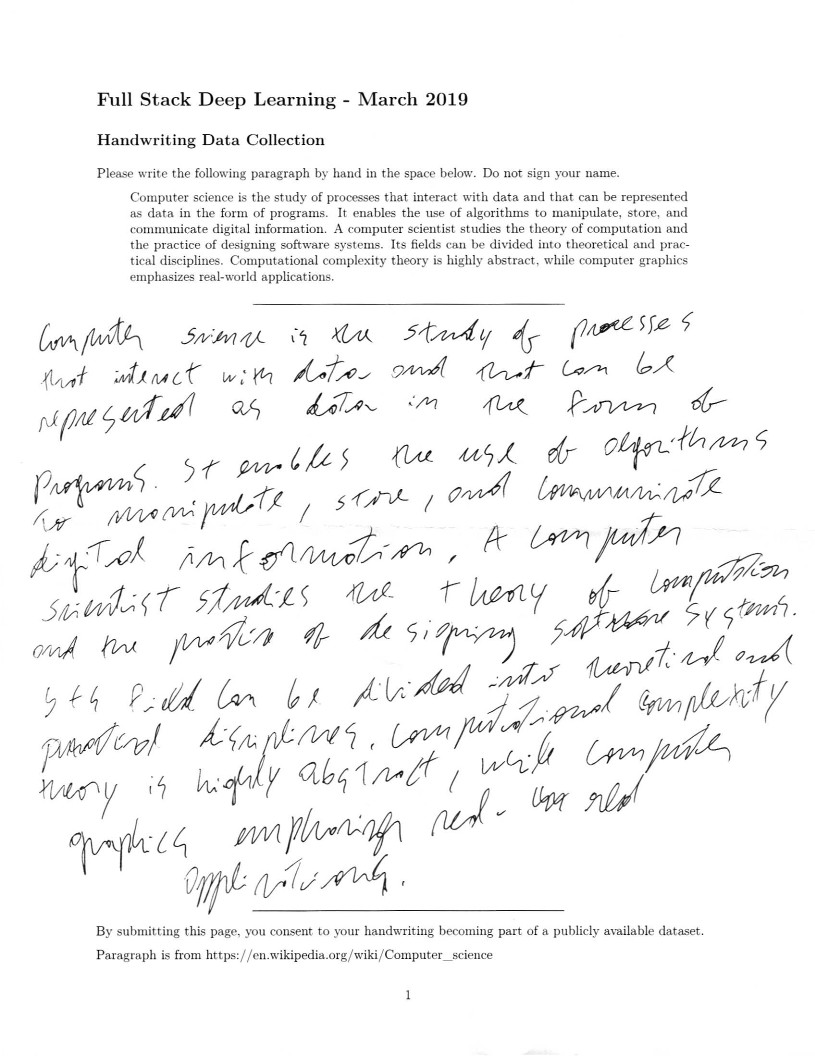 Full Stack Deep Learning - March 2019
Handwriting Data Collection
Please write the following paragraph by hand in the space below. Do not sign your name.
Computer science is the study of processes that interact with data and that can be represented
as data in the form of programs. It enables the use of algorithms to manipulate, store, and
communicate digital information. A computer scientist studies the theory of computation and
the practice of designing software systems. Its fields can be divided into theoretical and prac-
tical disciplines. Computational complexity theory is highly abstract, while computer graphics
emphasizes real-world applications.
Computer science is the study of processes
that interact with data and that can be
represented as data in the form of
Programs. It enables the use of algorithms
to manipulate, store, and communicate
digital information. A computer
scientist studies the theory of computation
and the practice of designing software systems.
Its field can be divided into theoretical and
practical disciplines. Computational complexity
theory is highly abstract, while computer
graphics emphasizes real-world
applications.
By submitting this page, you consent to your handwriting becoming part of a publicly available dataset.
Paragraph is from https://en.wikipedia.org/wiki/Computer_science
1